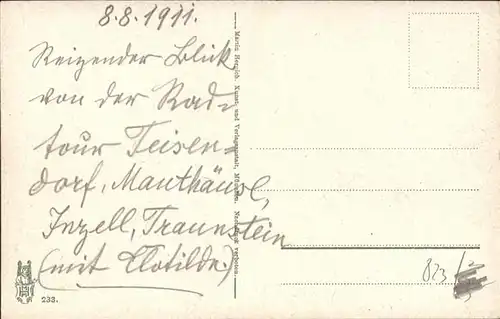 8.8.1911.
Reizender Blick
von der Rad=
tour Teisen=
dorf, Mauthäusl,
Inzell, Traunstein
(mit Clotilde.)
Martin Herpich, Kunst- und Verlagsanstalt, München. Nachdruck verboten
233.
823